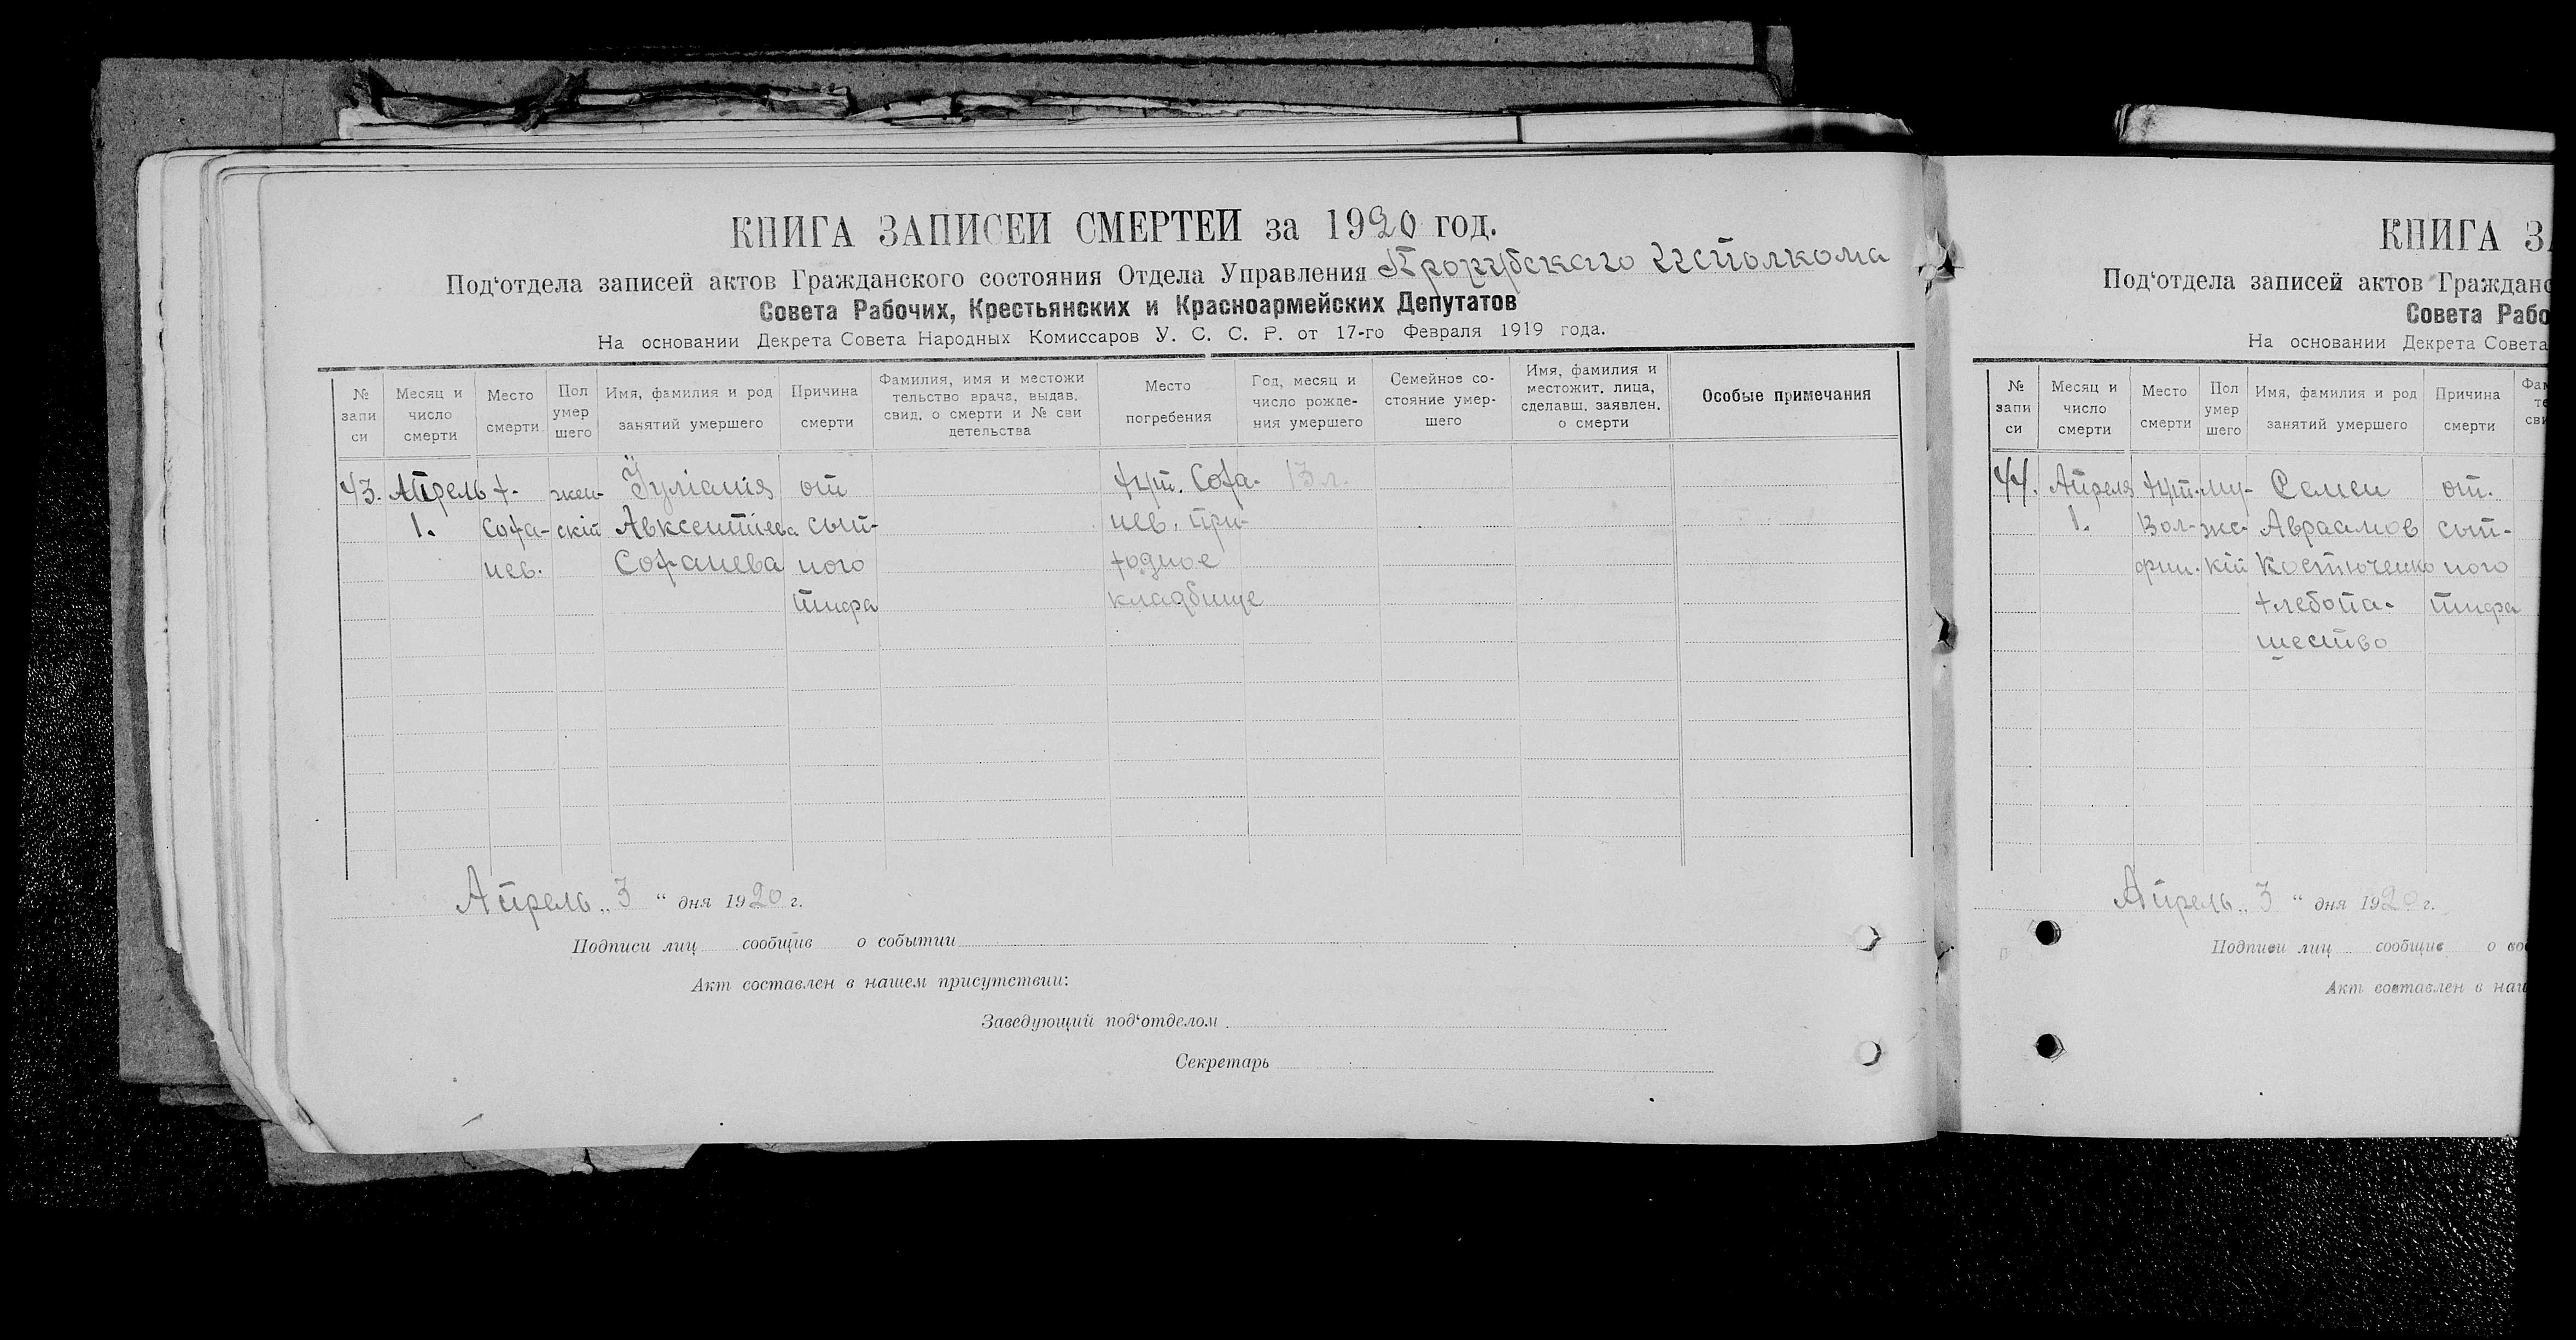 КНИГА ЗАПИСЕЙ СМЕРТЕЙ за 1920 год.
Под'отдела записей актов Гражданского состояния Отдела Управления Прорубского Исполкома
Совета Рабочих, Крестьянских и Красноармейских Депутатов
На основании Декрета Совета Народных Комиссаров У. С. С. Р. от 17-го Февраля 1919 года.
№ запи си
Месяц и число смерти
Место смерти
Пол умер шего
Имя, фамилия и род занятий умершего
Причина смерти
Фамилия, имя и местожи тельство врача, выдав. свид. о смерти и № сви детельства
Место погребения
Год, месяц и число рожде- ния умершего
Семейное со- стояние умер- шего
Имя, фамилия и местожит. лица, сделавш. заявлен. о смерти
Особые примечания
43. Апрель х. жен- Іуліанія от хут. Соха- 13 л.
1. Соха- скій Авксентіева сып- нев. при-
нев. Соханева ного ходное
тифа кладбище
Апрель „ 3 “ дня 1920 г.
Подписи лиц сообщив о событии
Акт составлен в нашем присутствии:
Заведующий под'отделом
Секретарь
КНИГА ЗА
Под'отдела записей актов Гражданс
Совета Рабо
На основании Декрета Совета
№ запи си
Месяц и число смерти
Место смерти
Пол умер шего
Имя, фамилия и род занятий умершего
Причина смерти
44. Апреля хут. му- Семен от.
1. жс- Авраамов сып-
кій Костюченко ного
хлебопа- тифа
шество
Апрель „ 3 “ дня 1920 г.
Подписи лиц сообщив о со
Акт составлен в наш